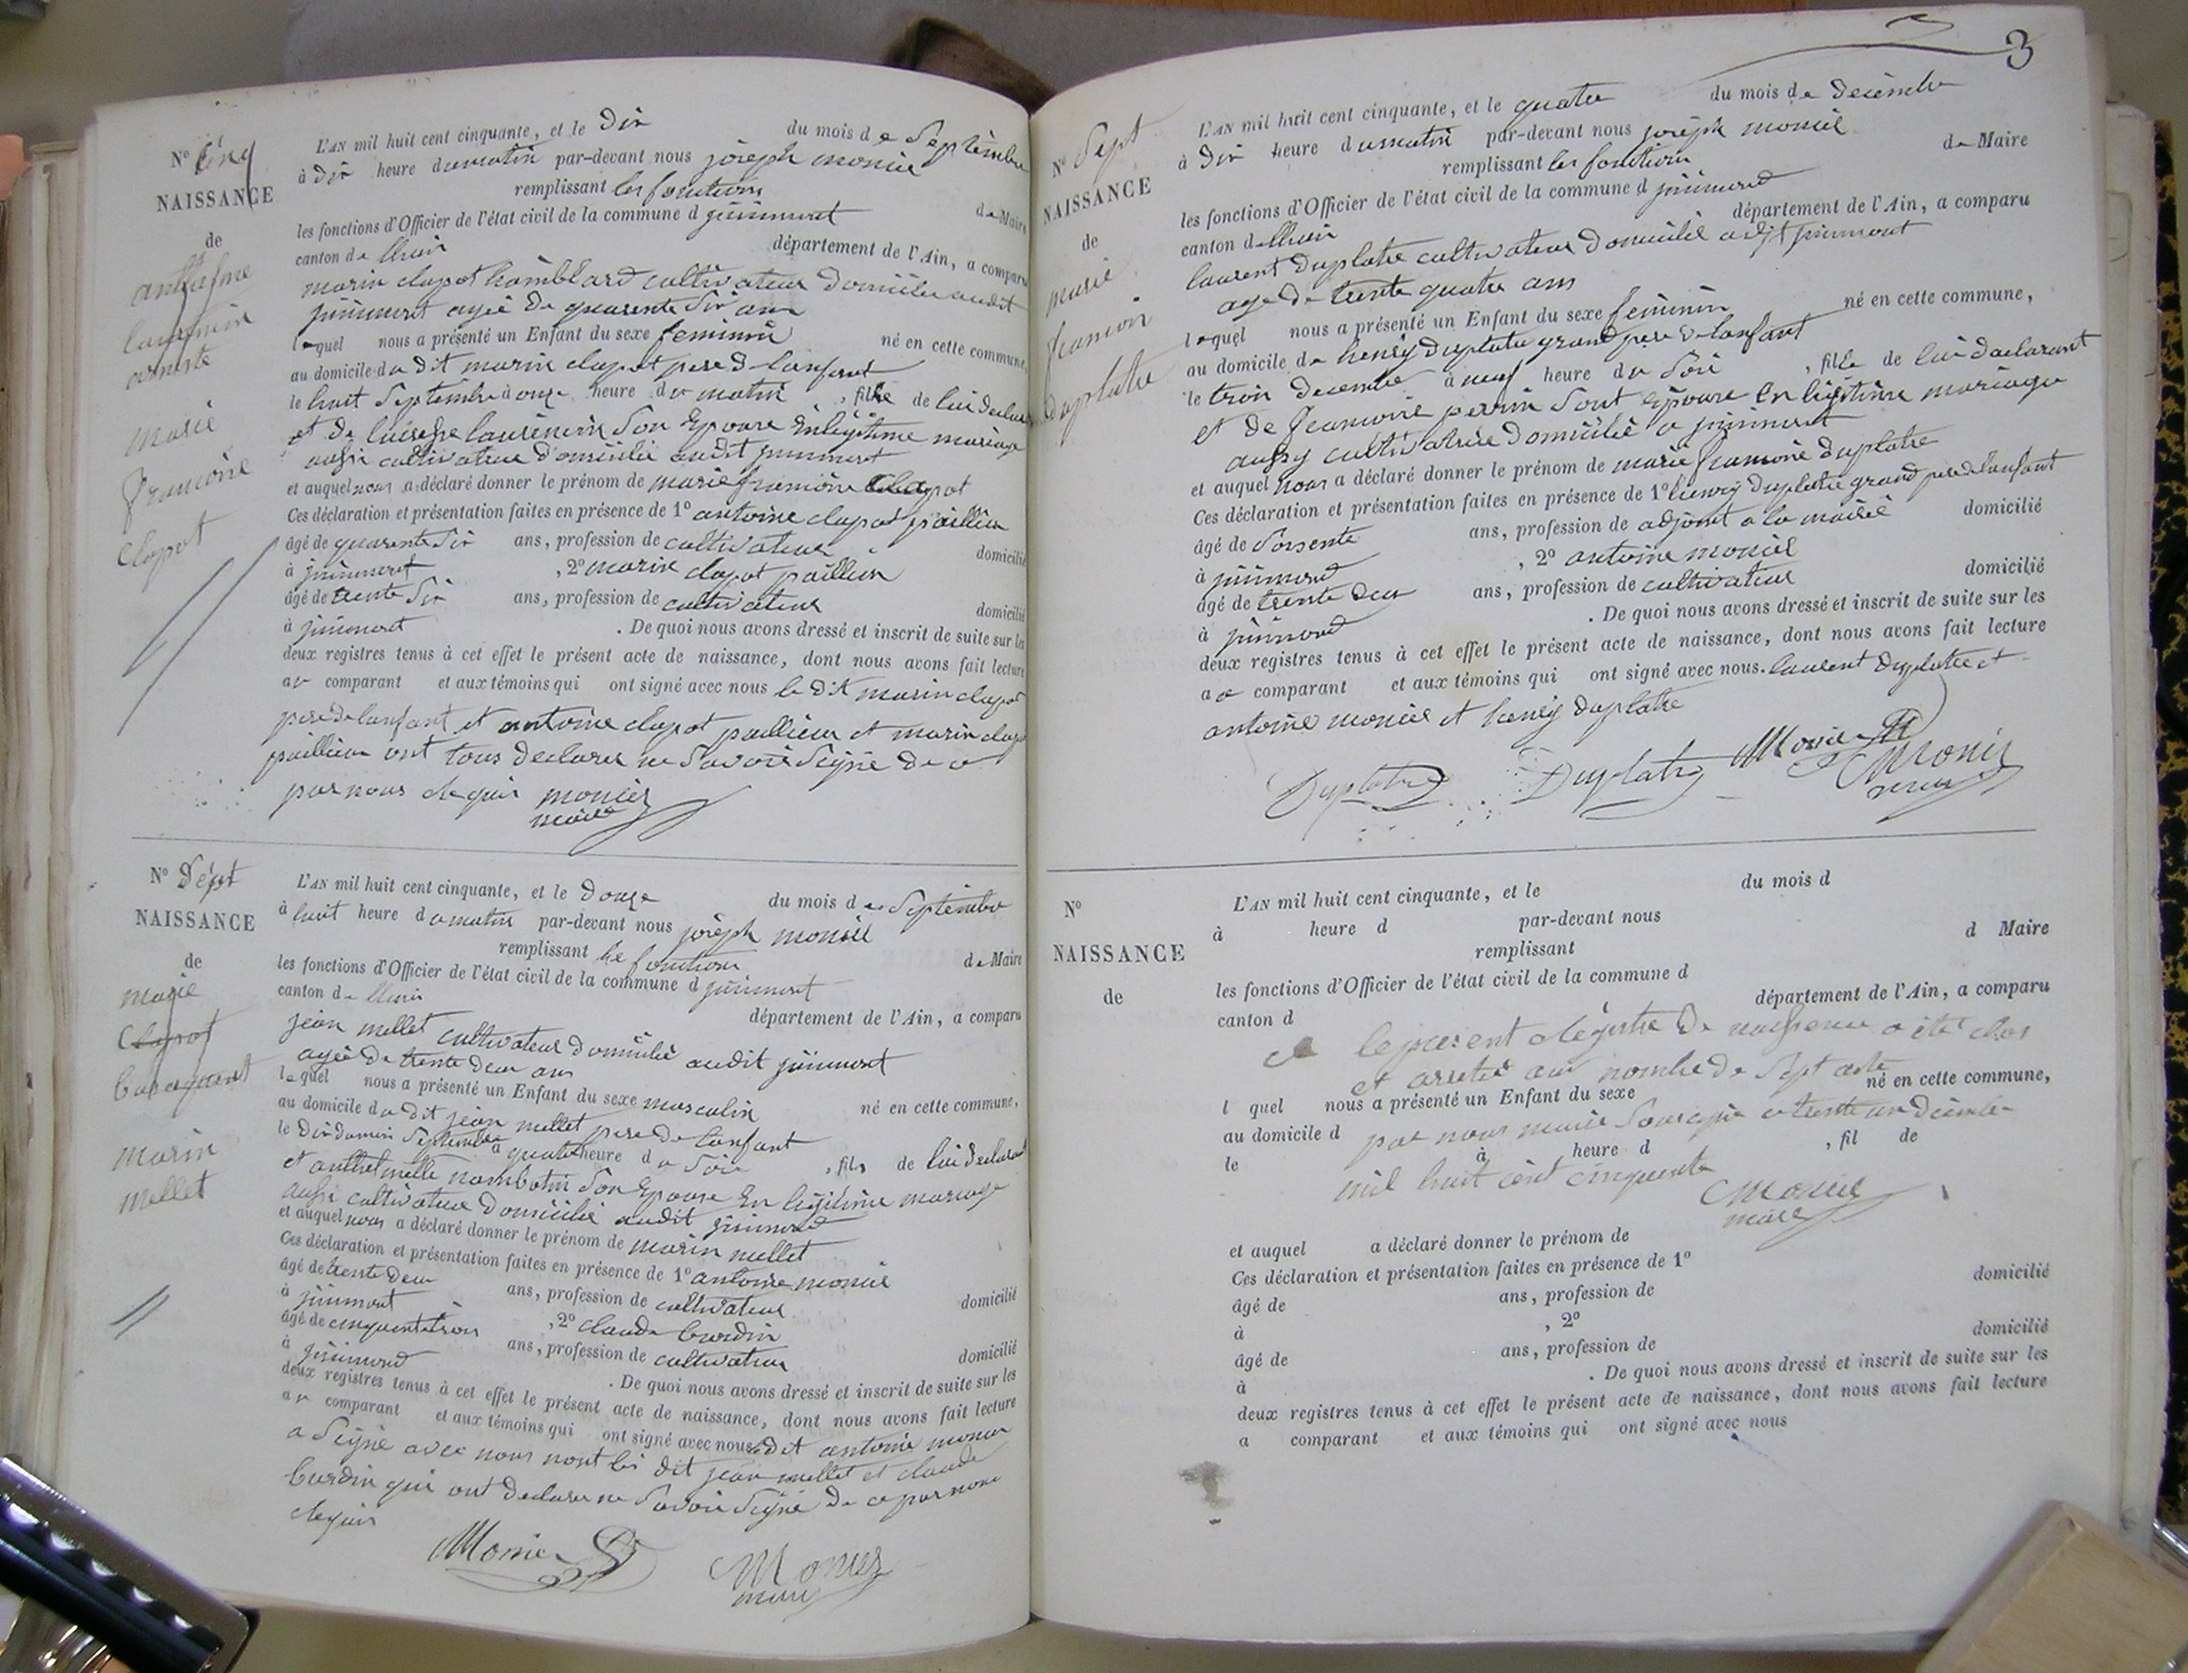 N° Cinq
NAISSANCE
de
laurencin
marie
francoise
Clapot
L'AN mil huit cent cinquante, et le dix du mois de Septembre
à dix heure du matin par-devant nous joseph monier
remplissant les fonctions de Maire
les fonctions d'Officier de l'état civil de la commune d
canton de lhuis département de l'Ain, a comparu
marin clapot hamblard cultivateur domicilie audit
agée de quarente Six ans
lequel nous a présenté un Enfant du sexe feminin né en cette commune,
au domicile du dit marin clapot pere de lanfant
le huit Septembre à onze heure du matin, fille de lui declarant
et de laurencin Son Epouse En légitime mariage
aussi cultivateur domicilie audit
et auquel nous a déclaré donner le prénom de marie francoise Clapot
Ces déclaration et présentation faites en présence de 1° antoine clapot paillieu
âgé de quarente Six ans, profession de cultivateur domicilié
à , 2° marin clapot paillieu
âgé de trente Six ans, profession de cultivateur domicilié
à . De quoi nous avons dressé et inscrit de suite sur les
deux registres tenus à cet effet le présent acte de naissance, dont nous avons fait lecture
au comparant et aux témoins qui ont signé avec nous le dit marin clapot
pere de lanfant et antoine clapot paillieu et marin clapot
paillieu ont tous declares ne Savoir Signé de ce
par nous requis monier
maire
N° Sept
NAISSANCE
de
marie
Clapot
marin
mellet
L'AN mil huit cent cinquante, et le douze du mois de Septembre
à huit heure du matin par-devant nous joseph monier
remplissant les fonctions de Maire
les fonctions d'Officier de l'état civil de la commune d
canton de lhuis département de l'Ain, a comparu
jean mellet cultivateur domicilié audit
agée de trente deux ans
lequel nous a présenté un Enfant du sexe masculin né en cette commune,
au domicile du dit jean mellet pere de lanfant
le Septembre à quatre heure du Soir, fils de lui declarant
et anthelmette Son Epouse En légitime mariage
aussi cultivateur domicilié audit
et auquel nous a déclaré donner le prénom de marin mellet
Ces déclaration et présentation faites en présence de 1° antoine monier
âgé de trente deux ans, profession de cultivateur domicilié
à , 2° claude burdin
âgé de cinquente trois ans, profession de cultivateur domicilié
à . De quoi nous avons dressé et inscrit de suite sur les
deux registres tenus à cet effet le présent acte de naissance, dont nous avons fait lecture
au comparant et aux témoins qui ont signé avec nous le dit antoine monier
a Signé avec nous nont les dit jean mellet et claude
burdin qui ont declares ne Savoir Signé de ce par nous
requis
Monier Monier
maire
3
N° Sept
NAISSANCE
de
marie
francoise
duplatre
L'AN mil huit cent cinquante, et le quatre du mois de decembre
à dix heure du matin par-devant nous joseph monier
remplissant les fonctions de Maire
les fonctions d'Officier de l'état civil de la commune d
canton de lhuis département de l'Ain, a comparu
laurent duplatre cultivateur domicilié
age de trente quatre ans
lequel nous a présenté un Enfant du sexe féminin né en cette commune,
au domicile de henry duplatre grand pere de lanfant
le trois decembre à neuf heure du Soir, fille de lui declarant
et de perrin Sont épouse En légitime mariage
aussy cultivatrice domicilié a
et auquel nous a déclaré donner le prénom de marie francoise duplatre
Ces déclaration et présentation faites en présence de 1° henry duplatre grand pere de lanfant
âgé de Soisente ans, profession de adjoint a la mairie domicilié
à , 2° antoine monier
âgé de trente deux ans, profession de cultivateur domicilié
à . De quoi nous avons dressé et inscrit de suite sur les
deux registres tenus à cet effet le présent acte de naissance, dont nous avons fait lecture
au comparant et aux témoins qui ont signé avec nous. laurent duplatre et
antoine monier et henry duplatre
Duplatre Duplatre Monier Monier
maire
N°
NAISSANCE
de
L'AN mil huit cent cinquante, et le du mois d
à heure d par-devant nous
remplissant d Maire
les fonctions d'Officier de l'état civil de la commune d
canton d département de l'Ain, a comparu
le present Régistre de naissence a été clos
et arreté au nombre de Sept acte
l quel nous a présenté un Enfant du sexe né en cette commune,
au domicile d par nous maire Soussigné le trente un décembre
le à heure d , fil de
mil huit cent cinquente
Monier
maire
et auquel a déclaré donner le prénom de
Ces déclaration et présentation faites en présence de 1°
âgé de ans, profession de domicilié
à , 2°
âgé de ans, profession de domicilié
à . De quoi nous avons dressé et inscrit de suite sur les
deux registres tenus à cet effet le présent acte de naissance, dont nous avons fait lecture
a comparant et aux témoins qui ont signé avec nous